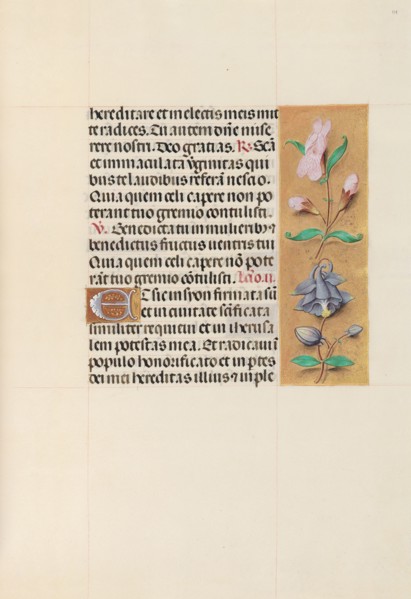 hereditare et in electis meis mit
te radices. Tu autem dñe mise
rere nostri. Deo gratias. R. Scã
et immaculata v̄ginitas qui
bus te laudibus referã nescio.
Quia quem celi capere non po
terant tuo gremio contulisti.
V. Benedicta tu in mulierib⁊
benedictus fructus ventris tui
Quia quem celi capere nõ pote
rãt tuo gremio cõtulisti. Lcio.ii.
Et sic in syon firmata sũ
et in civitate scificata
similiter requievi et in iherusa
lem potestas mea. Et radicavi ĩ
populo honorificato et in ptes
dei mei hereditas illius ⁊ in ple